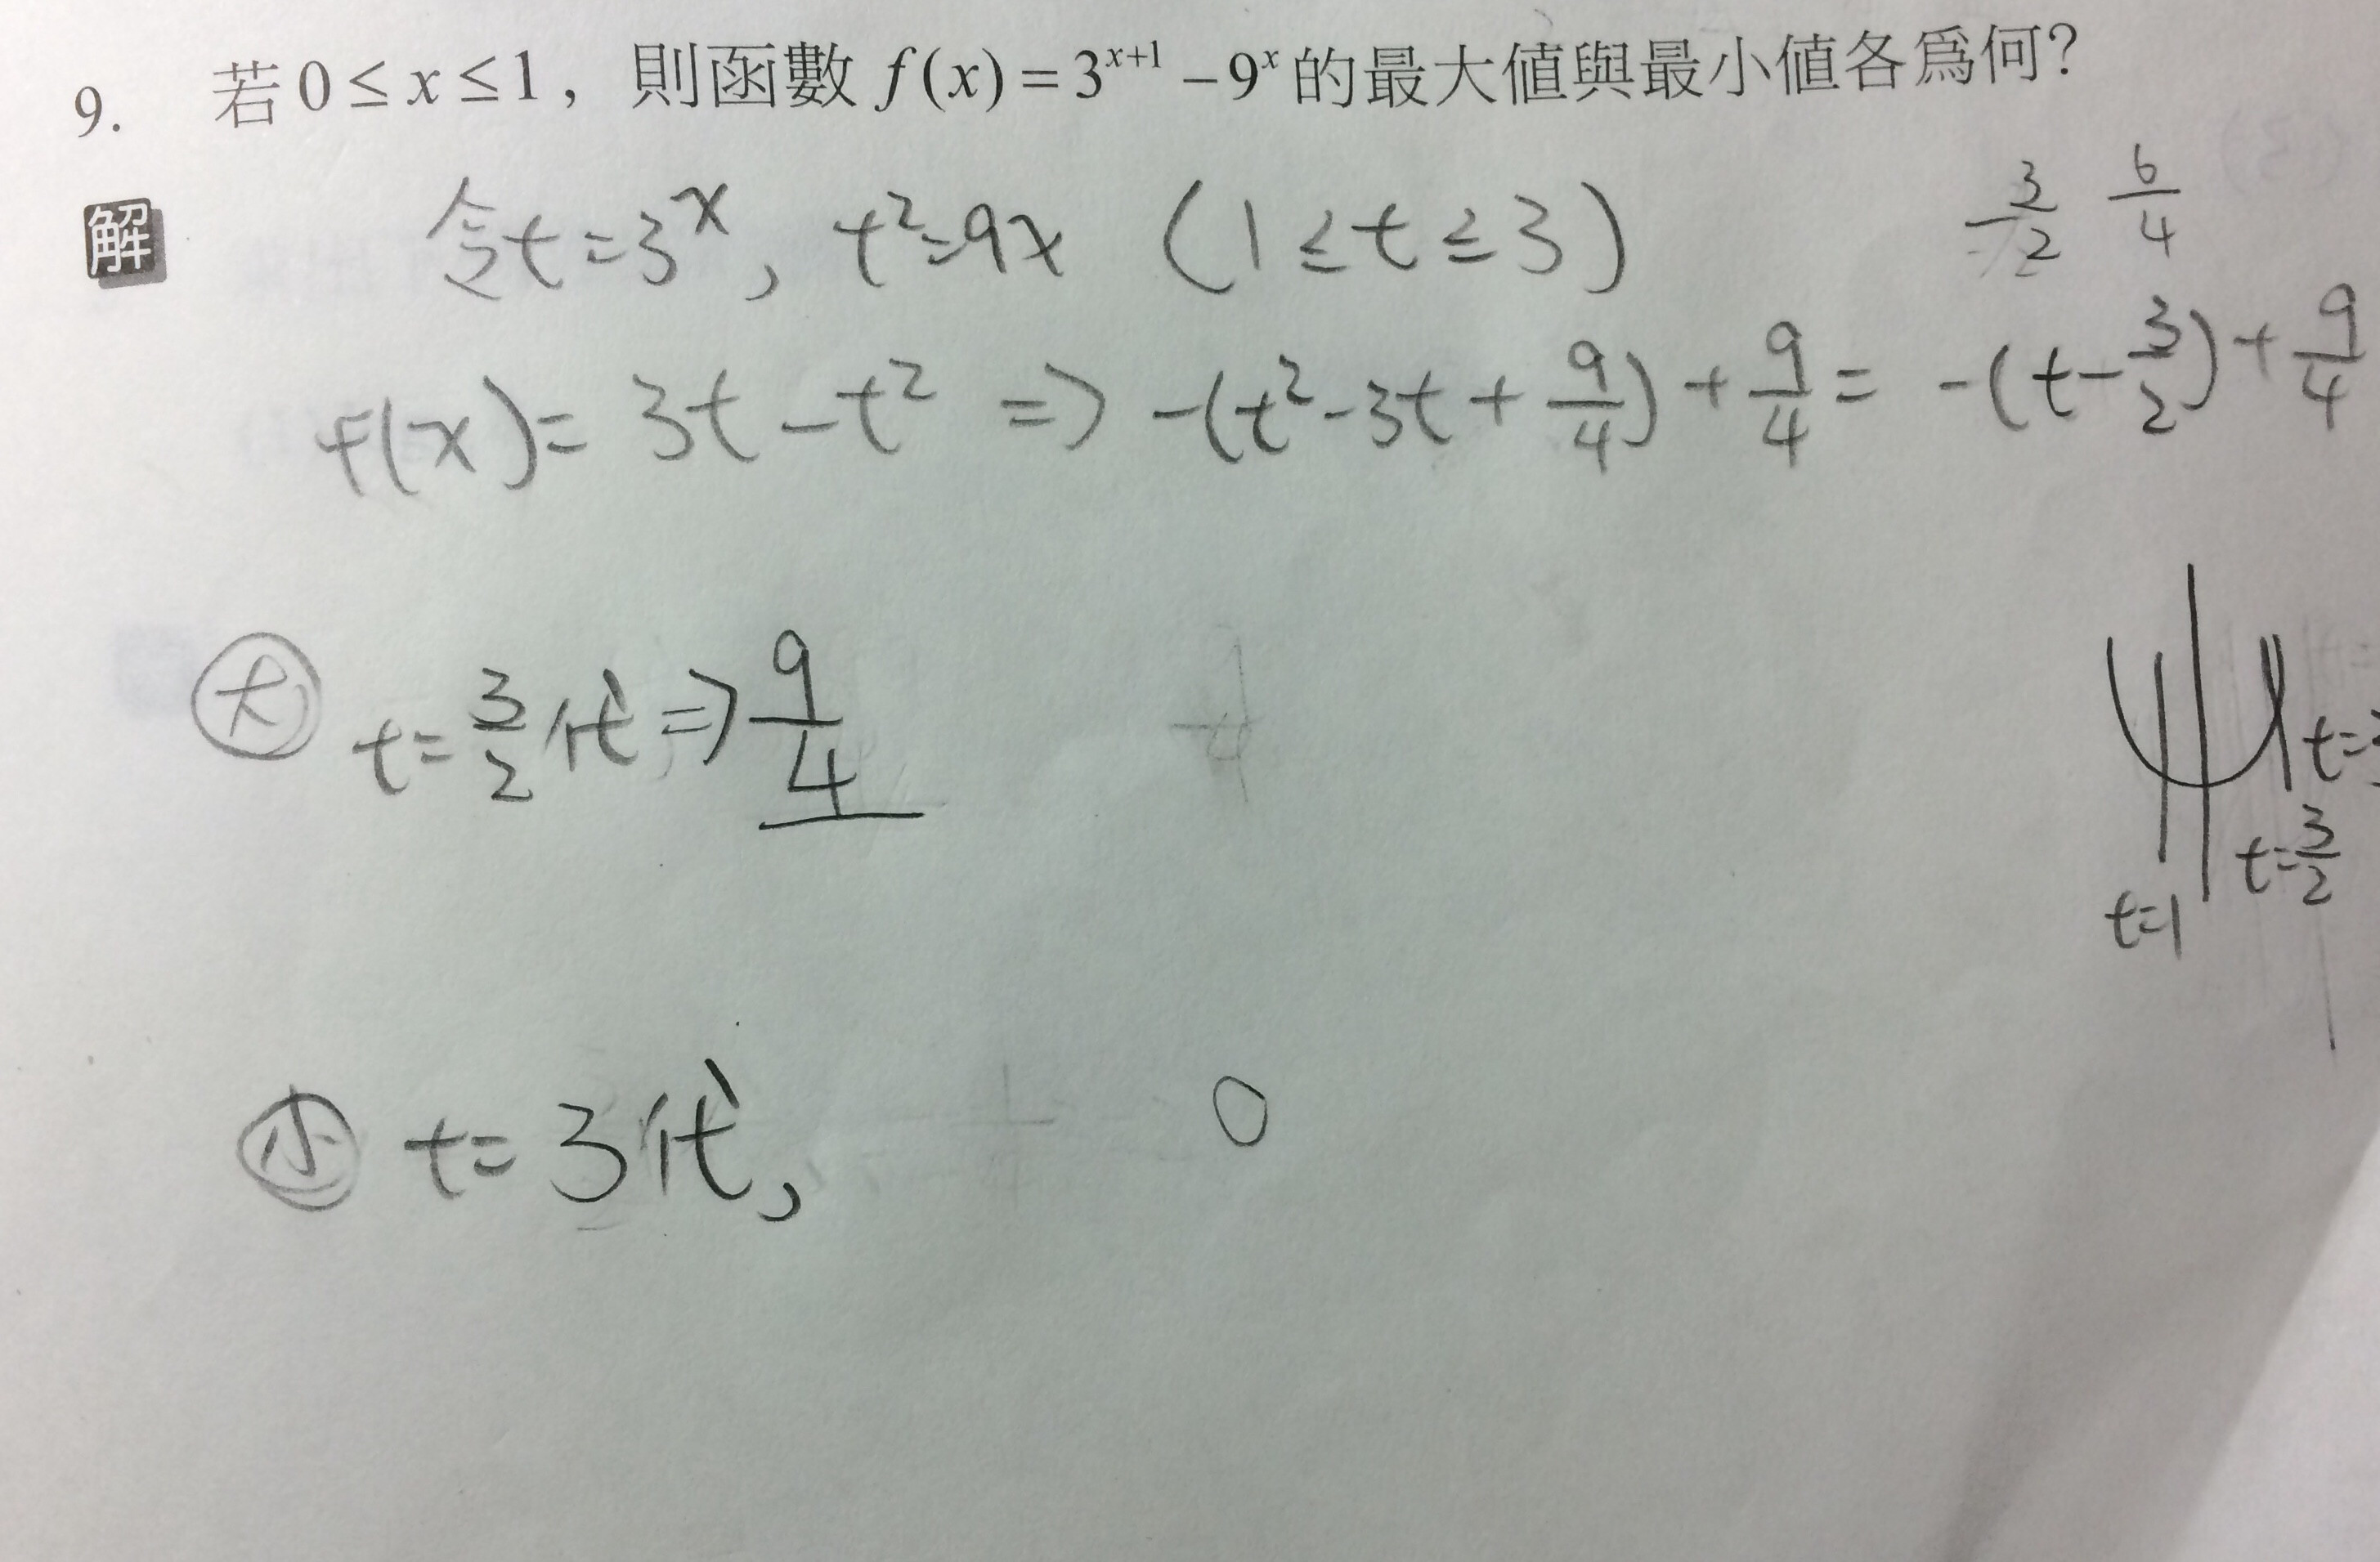 9. 若 0 ≤ x ≤ 1，則函數 f(x) = 3^{x+1} − 9^x 的最大值與最小值各爲何？
解 令t=3^x, t²=9x (1≤t≤3)
-3/2 6/4
f(x)= 3t-t² => -(t²-3t+9/4)+9/4= -(t-3/2)+9/4
大 t=3/2代=>9/4
t=1 t=3/2 t=
小 t=3代, 0